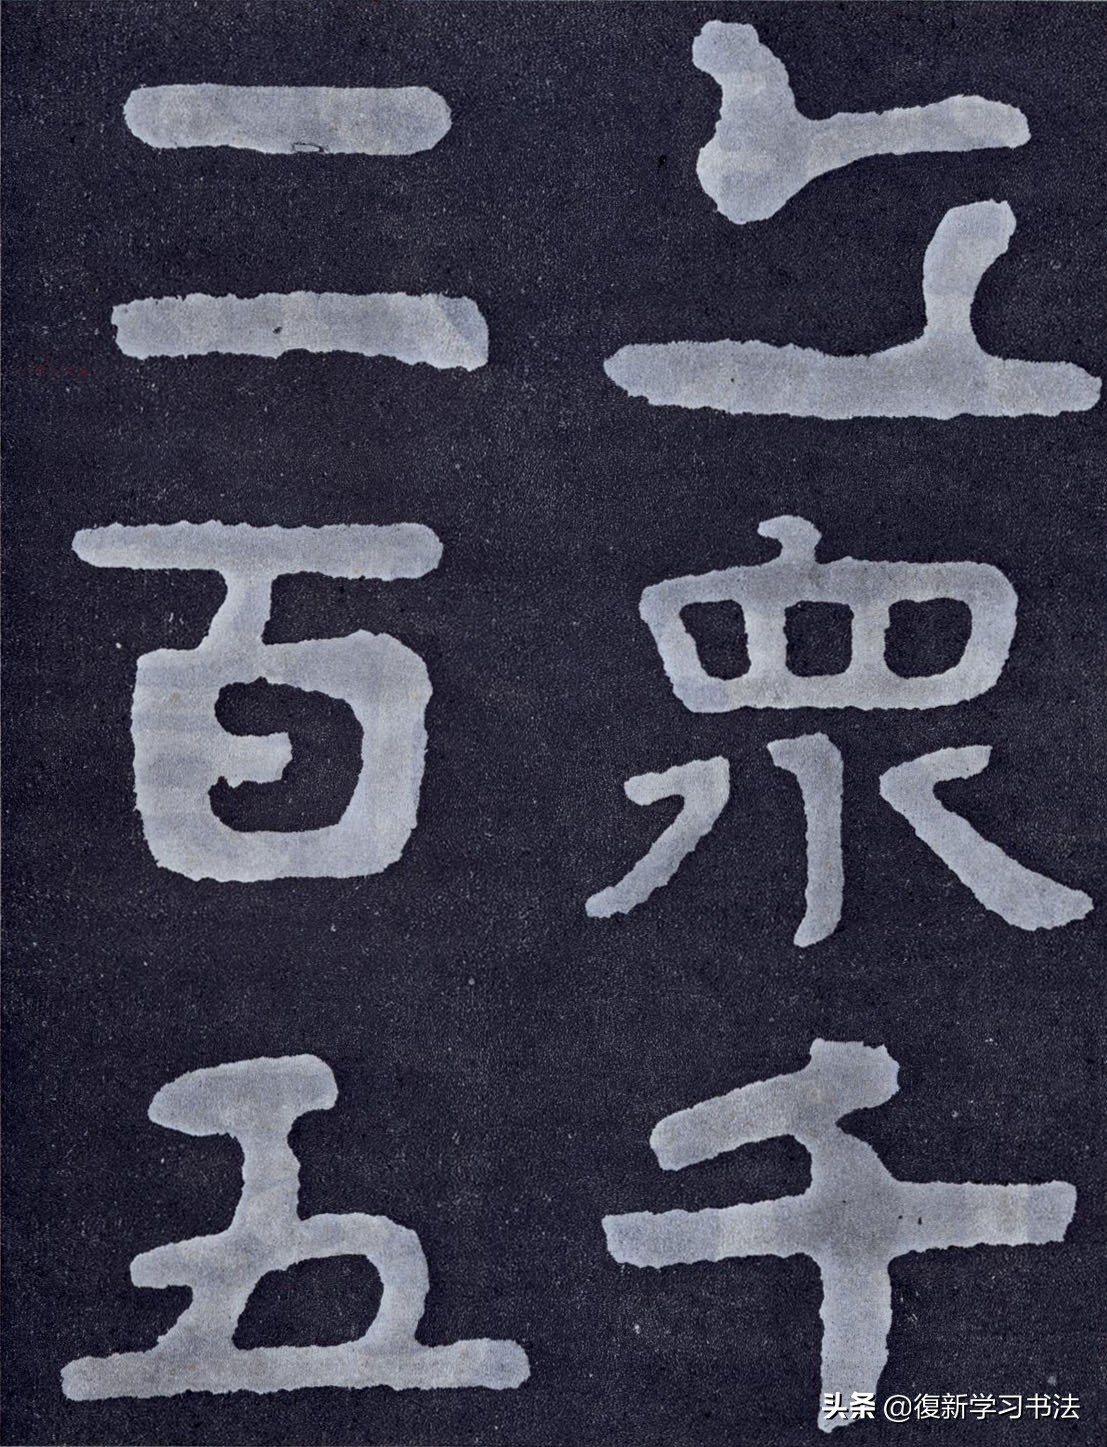 立眾千
二百五
头条 @復新学习书法